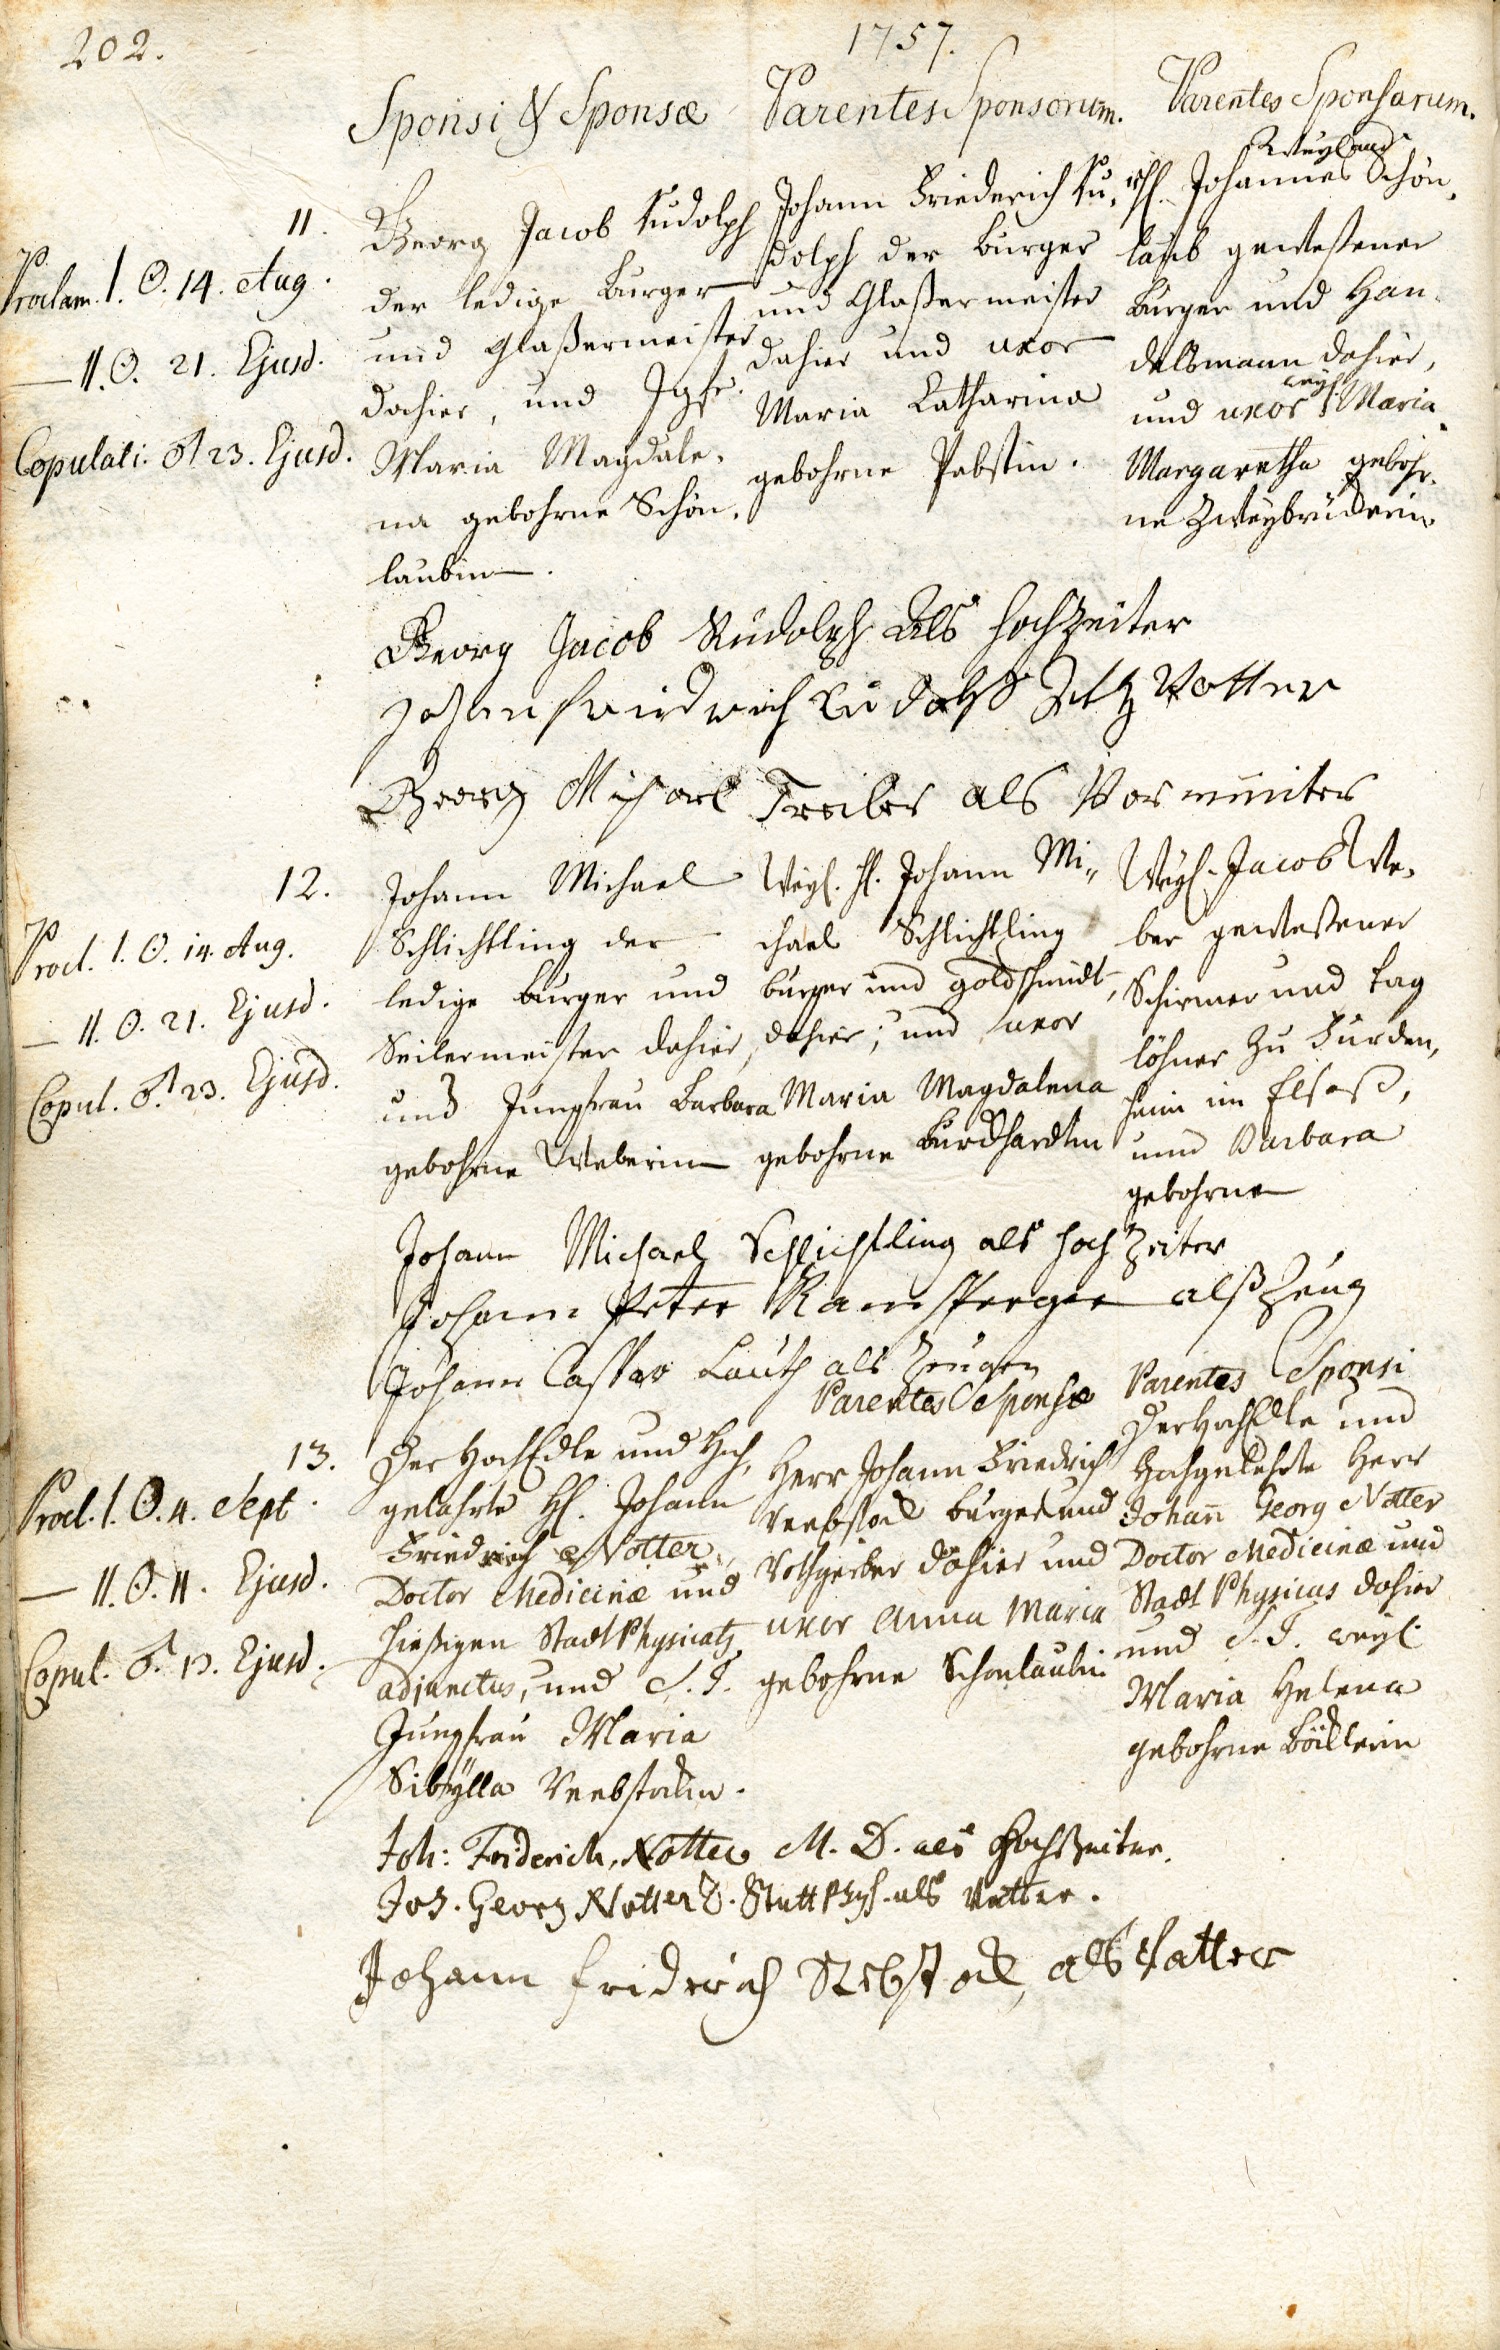 202.
1757.
Sponsi & Sponsæ
Parentes Sponsorum.
Parentes Sponsarum.
11.
Proclam. I. ☉. 14. Aug.
— II. ☉. 21. Ejusd.
Copulati. ♂ 23. Ejusd.
Georg Jacob Rudolph
der ledige Burger
und Glaßermeister
dahier, und Jgfr.
Maria Magdale-
na gebohrne Schön-
laubin.
Johann Friederich Ru-
dolph der Burger
und Glaßermeister
dahier und uxor
Maria Catharina
gebohrne Pabstin.
Weyland
H. Johannes Schön-
laub geweßener
Burger und Han-
delsmann dahier,
weyl.
und uxor Maria
Margaretha gebohr-
ne Zweybrüderin.
Georg Jacob Rudolph Als Hochzeiter
Johan Friedrich Rudolph Vatter
Georg Michael Treiber als Vormünter
12.
Procl. I. ☉. 14. Aug.
— II. ☉. 21. Ejusd.
Copul. ♂. 23. Ejusd.
Johann Michael
Schlichtling der
ledige burger und
Seilermeister dahier,
und Jungfrau Barbara
gebohrne Weberin
Weyl. H. Johann Mi-
chael Schlichtling
burger und goldschmidt
dahier, und uxor
Maria Magdalena
gebohrne Burckhardtin
Weyl. Jacob We-
ber geweßener
Schirmer und tag
löhner zu Furden-
heim im Elsaß,
und Barbara
gebohrne
Johann Michael Schlichtling als Hochzeiter
Johann Peter Ramsperger alß Zeug
Johann Caspar Lauth als Zeugen
Parentes Sponsæ
Parentes Sponsi
13.
Procl. I. ☉. 4. Sept.
— II. ☉. 11. Ejusd.
Copul. ♂. 13. Ejusd.
Der HochEdle und Hoch-
gelahrte H. Johann
Friedrich Notter,
Doctor Medicinæ und
hießigen Stadt Physicats
adjunctus, und S. T.
Jungfrau Maria
Sibylla Rebstockin.
Herr Johann Friedrich
Rebstock burger und
Rothgerber dahier und
uxor Anna Maria
gebohrne Schonlaubin
Der HochEdle und
Hochgelehrte Herr
Johann Georg Notter
Doctor Medicinæ und
Stadt Physicus dahier
und S. T. weyl.
Maria Helena
gebohrne Böcklerin
Joh: Friderich Notter M. D. als Hochzeiter.
Joh. Georg Notter D. Statt Phys. als Vatter.
Johann Friderich Rebstock, als Vatter